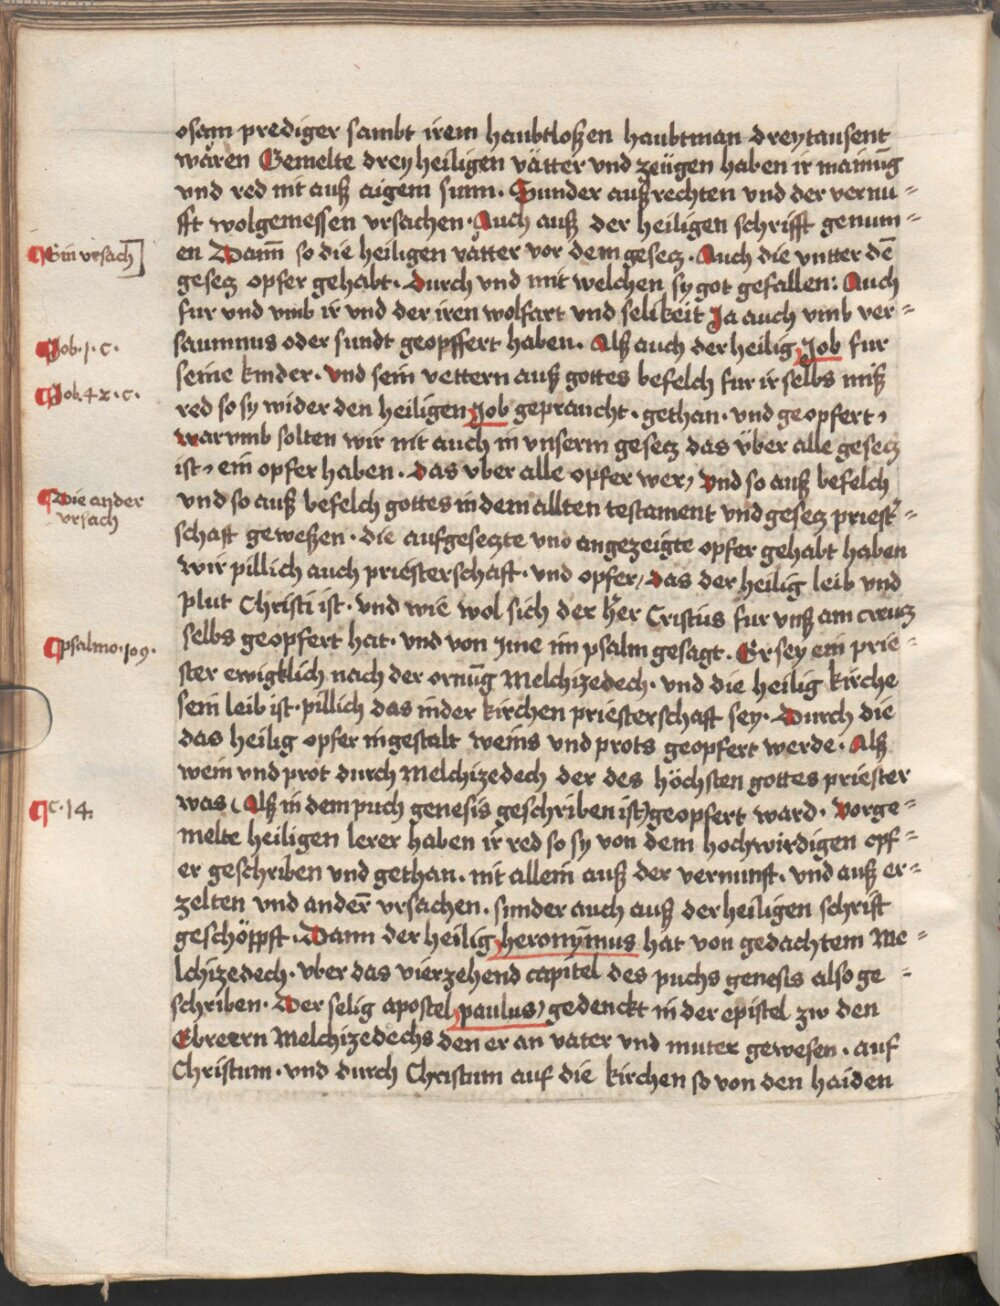 osam prediger sambt irem haubtloßen haubtman dreytausent
wåren Gemelte drey heiligen våtter vnd zeügen haben ir mainūg
vnd red nit auß aigem sinn. Sunder auß rechten vnd der vernu-
fft wolgemessen vrsachen. Auch auß der heiligen schrifft genum-
Ein vrsach
en Dann so die heiligen våtter vor dem gesecz. Auch die vntter dē
gesecz opfer gehabt. Durch vnd mit welchen sy got gefallen: Auch
fur vnd vmb ir vnd der iren wolfart vnd selikeit Ja auch vmb ver-
Job. 1. c.
saumnus oder sundt geopffert haben. Alß auch der heilig Job fur
seine kinder. vnd sein vettern auß gottes befelch fur ir selbs miß
Job. 42. c.
red so sy wider den heiligen Job gepraucht. gethan. vnd geopfert,
warvmb solten wir nit auch in vnserm gesecz das über alle gesecz
ist, ein opfer haben. das vber alle opfer wer, vnd so auß befelch
Die ander
vrsach
vnd so auß befelch gottes in dem allten testament vnd gesecz priest-
schaft geweßen. die aufgesetzte vnd angezeigte opfer gehabt haben
wir pillich auch priesterschaft. vnd opfer, das der heilig leib vnd
plut Christi ist. vnd wie wol sich der her Cristus fur vnß am creucz
Psalmo. 109.
selbs geopfert hat. vnd von Ime im psalm gesagt. Er sey ein prie-
ster ewigklich nach der ornūg Melchizedech. vnd die heilig kirche
sein leib ist. pillich das in der kirchen priesterschaft sey. Durch die
das heilig opfer in gestalt weins vnd prots geopfert werde. Alß
wein vnd prot durch Melchizedech der des höchsten gottes priester
C. 14.
was (Alß in dem puch genesis geschriben ist) geopfert ward. Vorge-
melte heiligen lerer haben ir red so sy von dem hochwirdigen opf-
er geschriben vnd gethan. nit allein auß der vernunft. vnd auß er-
zelten vnd ander vrsachen. sunder auch auß der heiligen schrift
geschöpft. Dann der heilig heronymus hat von gedachtem Me-
lchizedech. vber das vierzehend capitel des puchs genesis also ge-
schriben. Der selig apostel paulus, gedenckt in der epistel zw den
Ebreern Melchizedechs den er an vater vnd muter gewesen. auf
Christum. vnd durch Christum auf die kirchen so von den haiden